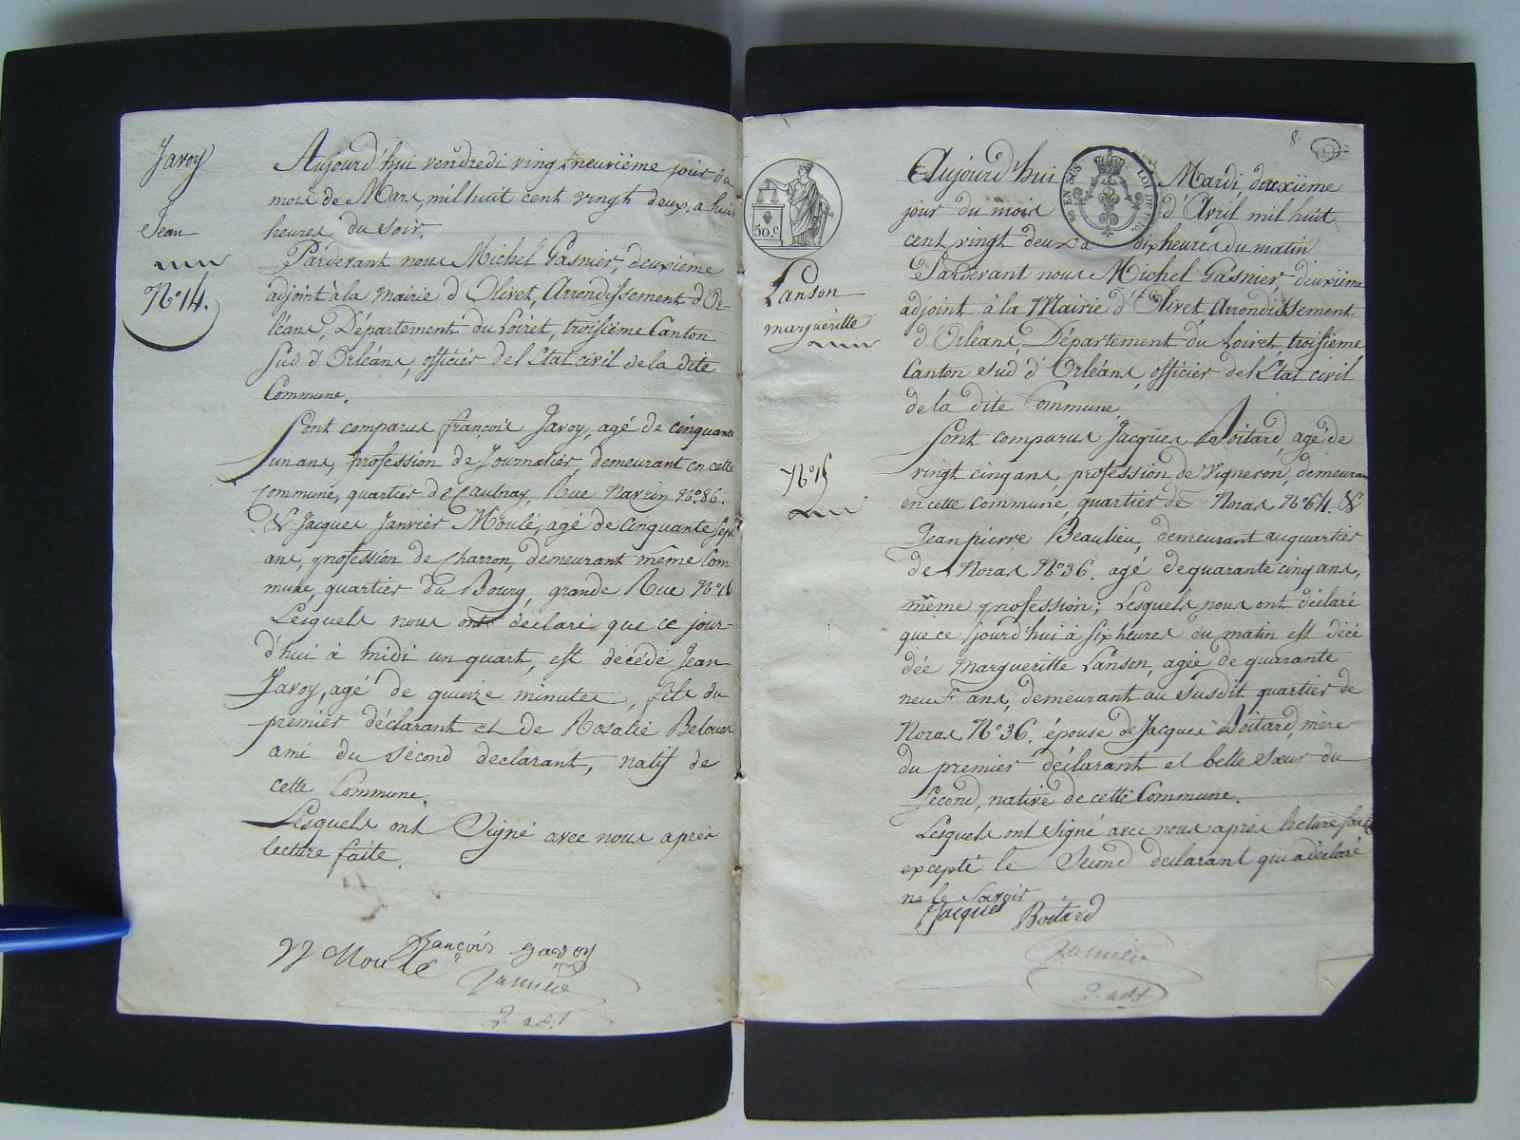 Javoy
Jean
N°. 14.
Aujourd'hui vendredi vingt neuvième jour du
mois de Mars, mil huit cent vingt deux, a huit
heures du soir.
Pardevant nous Michel Gasnier, deuxième
adjoint à la Mairie d'Olivet, Arrondissement d'Or-
léans, Département du Loiret, troisième Canton
Sud d'Orléans, officier de l'Etat civil de la dite
Commune.
Sont comparus françois Javoy, agé de cinquante
un ans, profession de Journalier, demeurant en cette
commune, quartier de Caubray, Rue N°. 86.
& Jacques Janvier Moulé, agé de Cinquante sept
ans, profession de Charron, demeurant même Com
mune, quartier du Bourg, grande Rue
Lesquels nous ont déclaré que ce jour-
d'hui à midi un quart, est décédé Jean
Javoy, agé de quinze minutes, fils du
premier déclarant et de Rosalie
ami du second declarant, natif de
cette Commune.
Lesquels ont Signé avec nous après
lecture faite.
JJ Moulé françois Javoy
2. adj.t
8.
EN SUS
50.c
Lanson
marguéritte
N°. 15
Aujourd'hui Mardi deuxième
jour du mois d'Avril mil huit
cent vingt deux à dix heures du matin
Pardevant nous Michel Gasnier, deuxième
adjoint à la Mairie d'Olivet, Arrondissement
d'Orléans, Département du Loiret, troisième
Canton Sud d'Orléans, officier de l'Etat civil
de la dite Commune.
Sont comparus Jacques Boitard, agé de
vingt cinq ans, profession de Vigneron, demeurant
en cette commune, quartier de Noras N°. 64. &
Jean pierre Beaulieu, demeurant au quartier
de Noras N°. 36. agé de quarante cinq ans,
même profession; Lesquels nous ont déclaré
que ce jourd'hui à six heures du matin est décé
dée Margueritte Lanson, agée de quarante
neuf ans, demeurant au susdit quartier de
Noras N°. 36. épouse de Jacques Boitard, mère
du premier déclarant et belle sœur du
second, native de cette Commune.
Lesquels ont signé avec nous après lecture faite
excepté le Second declarant qui a déclaré
ne le Savoir
Jacques Boitard
2. adj.t